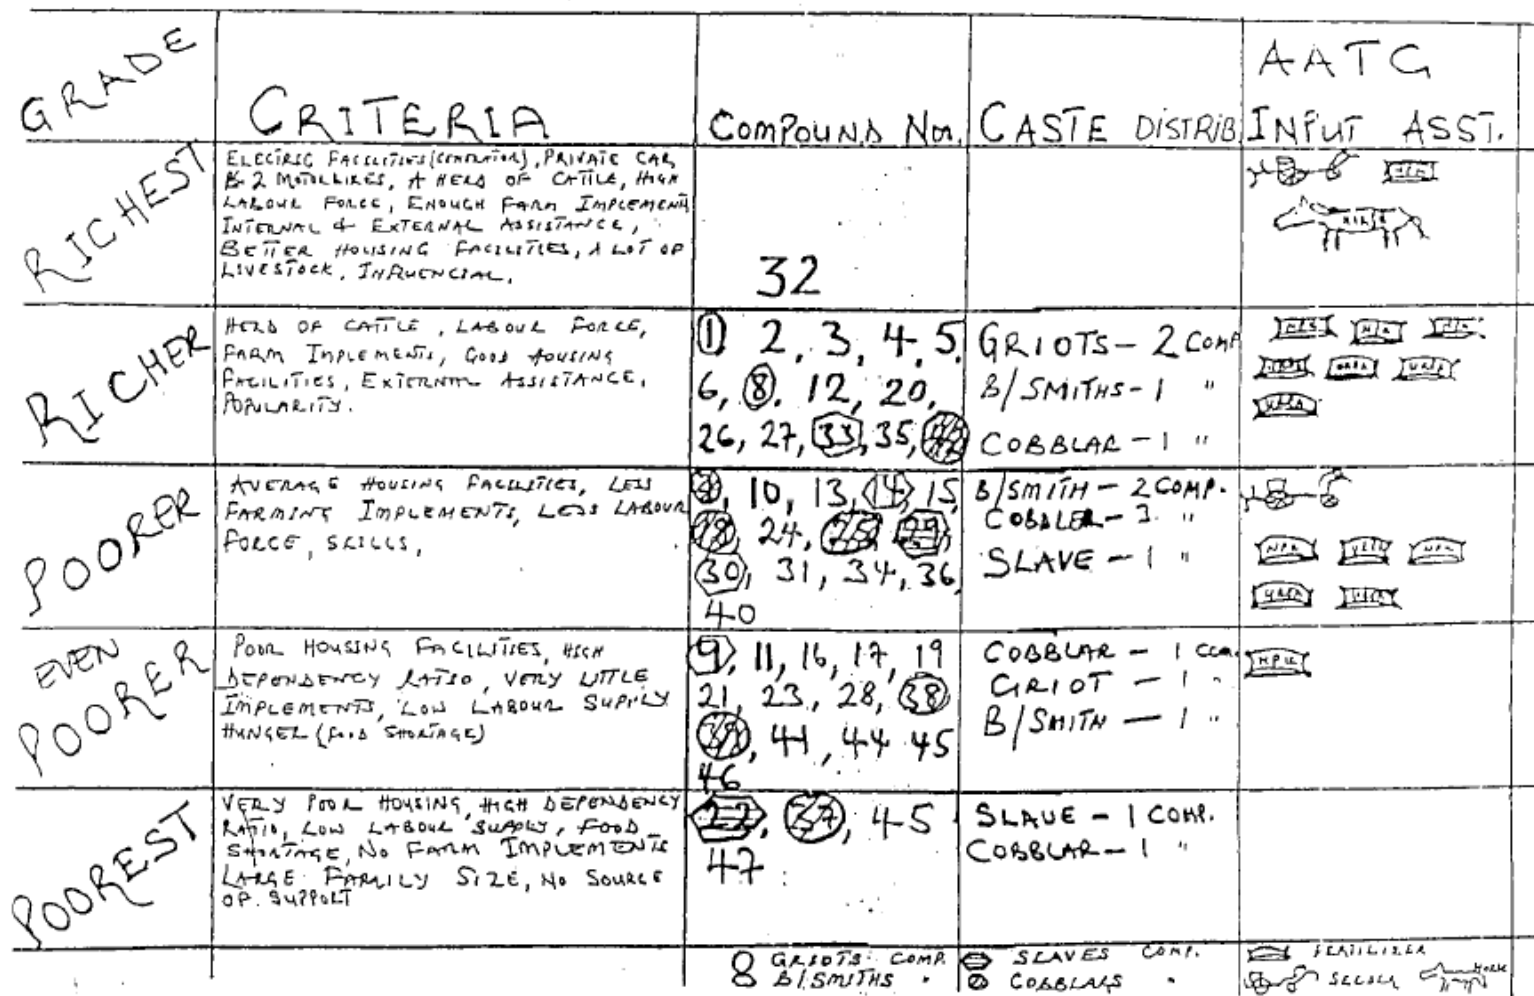 GRADE
CRITERIA
COMPOUND Nos.
CASTE DISTRIB
AATG
INPUT ASST.
RICHEST
ELECTRIC FACILITIES (GENERATOR), PRIVATE CAR,
& 2 MOTORBIKES, A HERD OF CATTLE, HIGH
LABOUR FORCE, ENOUGH FARM IMPLEMENTS
INTERNAL & EXTERNAL ASSISTANCE,
BETTER HOUSING FACILITIES, A LOT OF
LIVESTOCK, INFLUENCIAL.
32
RICHER
HERD OF CATTLE, LABOUR FORCE,
FARM IMPLEMENTS, GOOD HOUSING
FACILITIES, EXTERNAL ASSISTANCE,
POPULARITY.
1 2, 3, 4, 5,
6, 8, 12, 20,
26, 27, 33, 35, 42
GRIOTS - 2 COMP
B/SMITHS - 1 "
COBBLAR - 1 "
POORER
AVERAGE HOUSING FACILITIES, LESS
FARMING IMPLEMENTS, LESS LABOUR
FORCE, SKILLS,
10, 13, 14, 15,
18, 24, 25, 29,
30, 31, 34, 36,
40
B/SMITH - 2 COMP.
COBBLER - 3 "
SLAVE - 1 "
NPK
UREA
EVEN
POORER
POOR HOUSING FACILITIES, HIGH
DEPENDENCY RATIO, VERY LITTLE
IMPLEMENTS, LOW LABOUR SUPPLY
HUNGER (FOOD SHORTAGE)
9, 11, 16, 17, 19
21, 23, 28, 38
39, 41, 44 45
46
COBBLAR - 1 COM.
GRIOT - 1 "
B/SMITH - 1 "
POOREST
VERY POOR HOUSING, HIGH DEPENDENCY
RATIO, LOW LABOUR SUPPLY, FOOD
SHORTAGE, NO FARM IMPLEMENTS
LARGE FAMILY SIZE, NO SOURCE
OF SUPPORT
22, 37, 45
47
SLAVE - 1 COMP.
COBBLAR - 1 "
GRIOTS COMP.
B/SMITHS "
SLAVES COMP.
COBBLARS "
FERTILIZER
SEEDER
HORSE